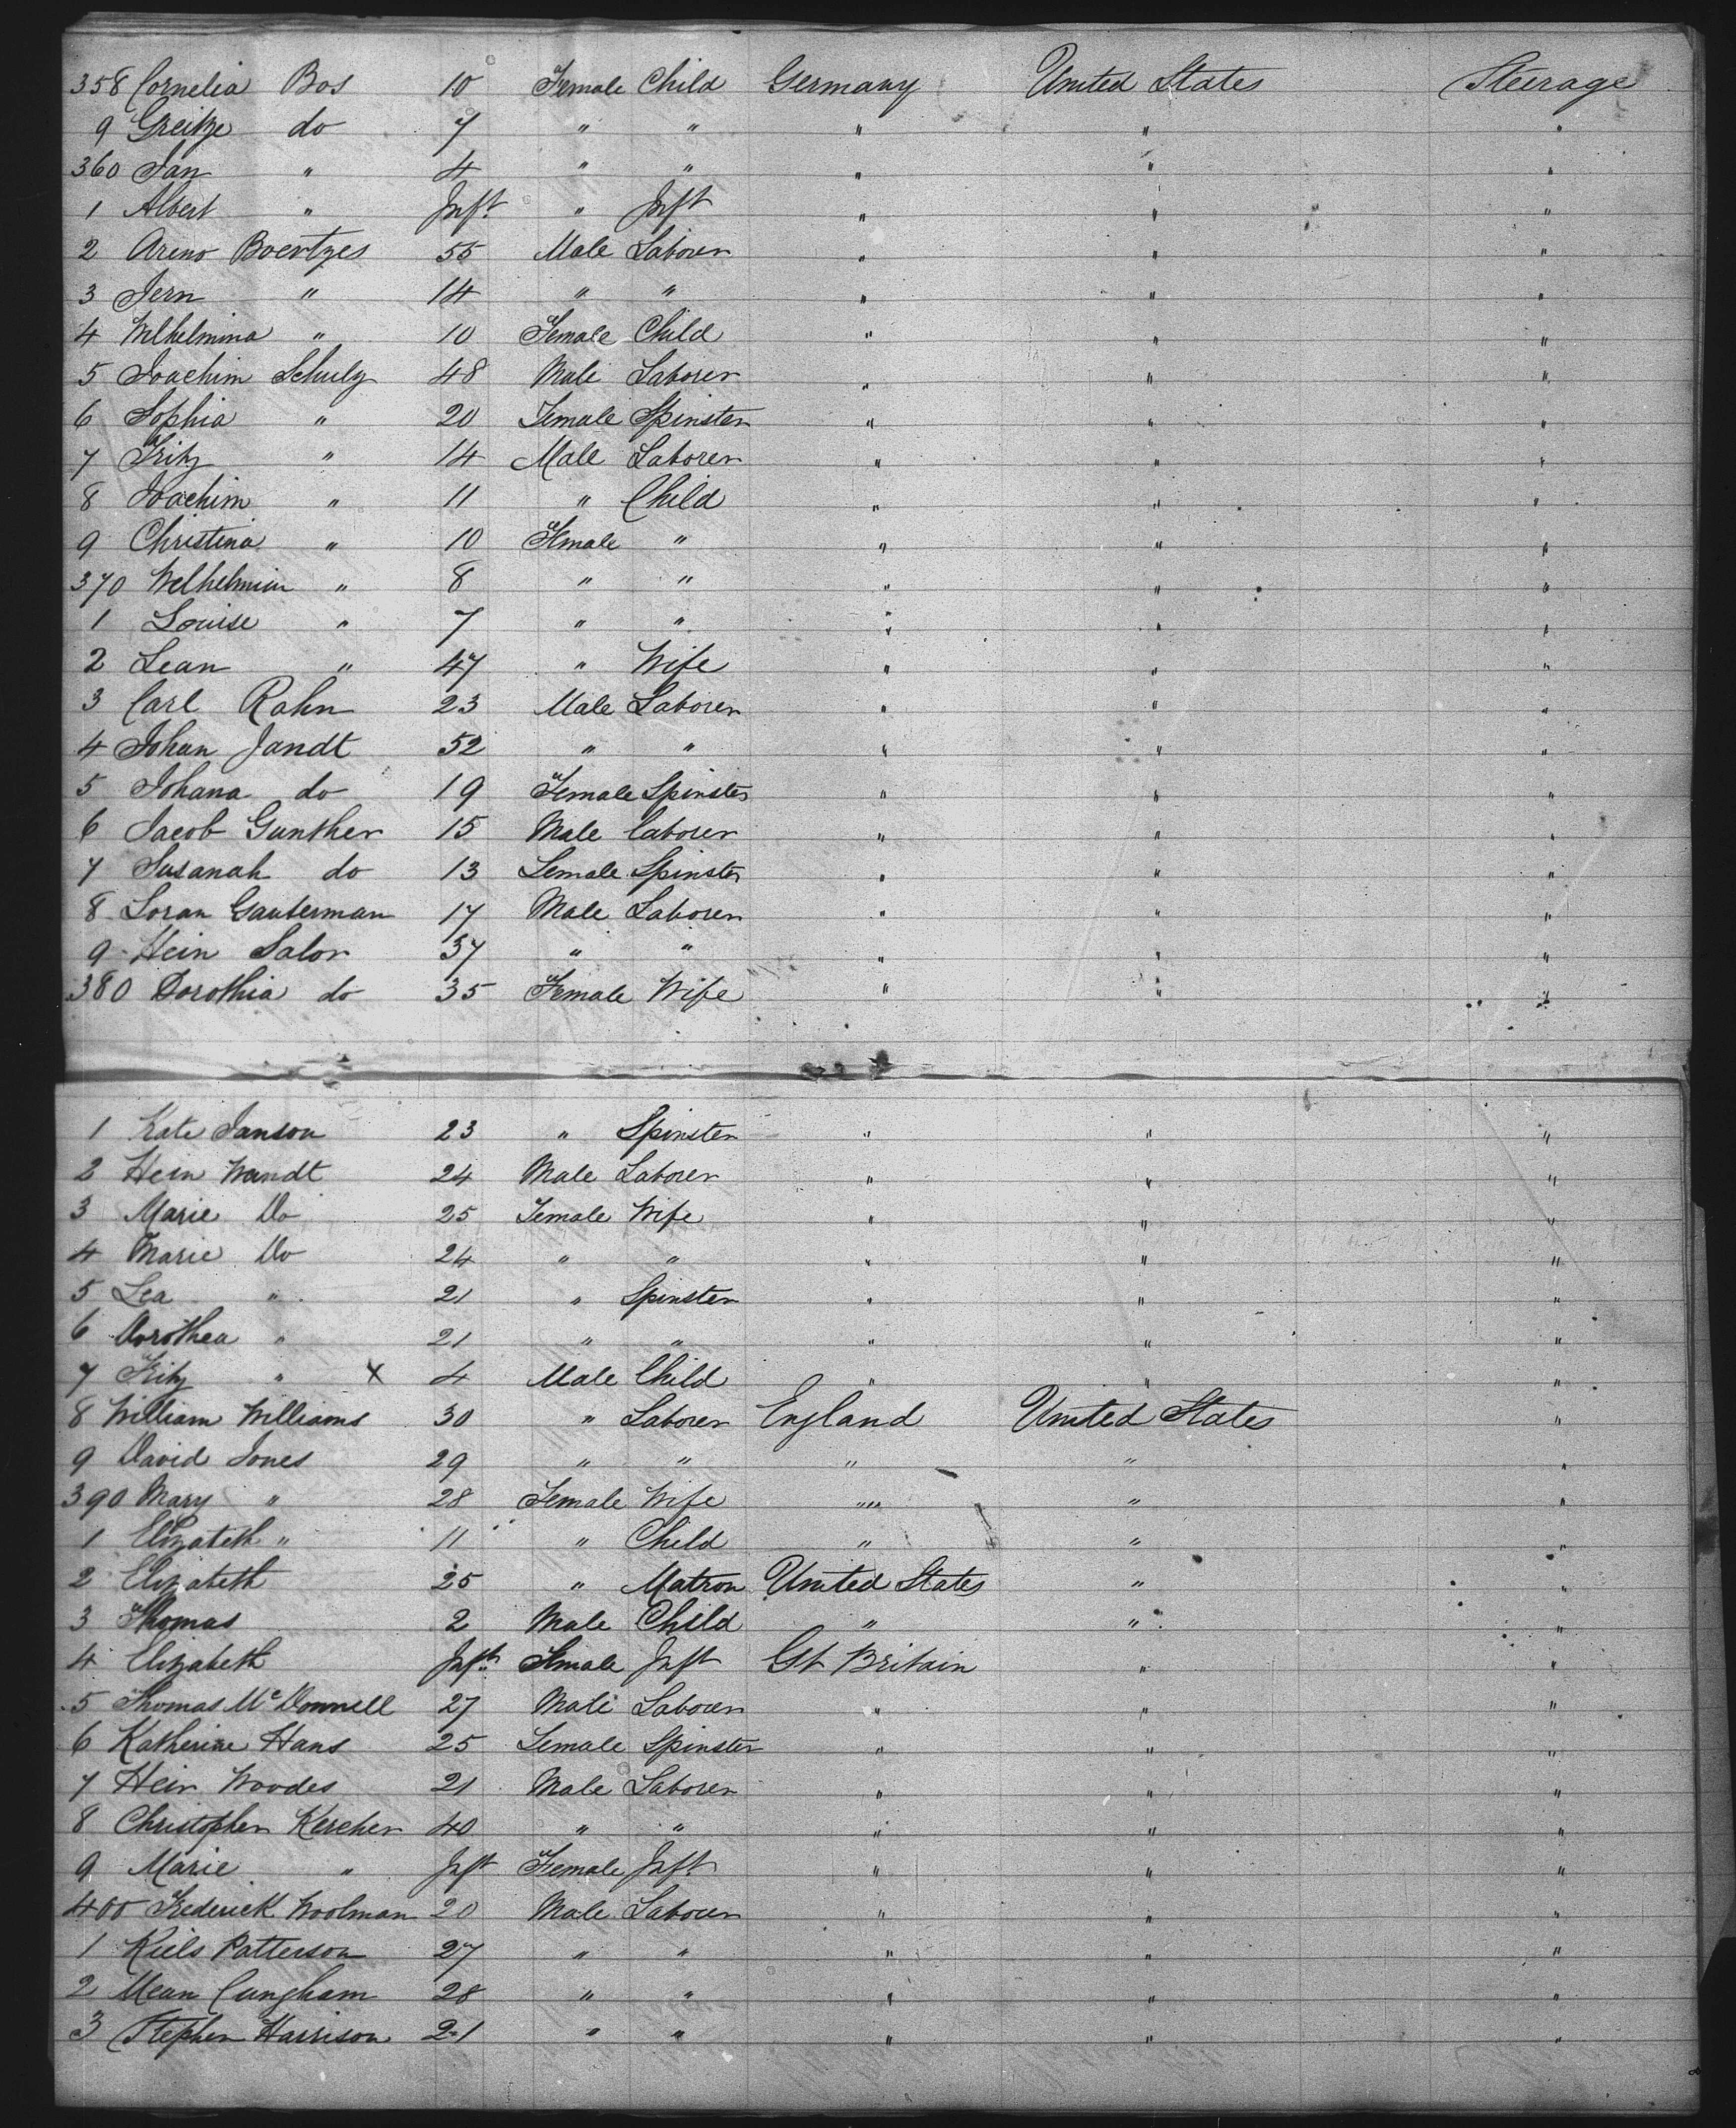 358 Cornelia Bos 10 Female Child Germany United States Steerage
9 Greitze do 7 " " " " "
360 Jan " 4 " " " " "
1 Albert " Inft. " Inft " " "
2 Areno Boertzes 55 Male Laborer " " "
3 Jern " 14 " " " " "
4 Wilhelmina " 10 Female Child " " "
5 Joachim Schulz 48 Male Laborer " " "
6 Sophia " 20 Female Spinster " " "
7 Fritz " 14 Male Laborer " " "
8 Joachim " 11 " Child " " "
9 Christina " 10 Female " " " "
370 Welhelmin " 8 " " " " "
1 Louise " 7 " " " " "
2 Lean " 47 " Wife " " "
3 Carl Rahn 23 Male Laborer " " "
4 Johan Jandt 52 " " " " "
5 Johana do 19 Female Spinster " " "
6 Jacob Gunther 15 Male laborer " " "
7 Susanah do 13 Female Spinster " " "
8 Loran Gauterman 17 Male Laborer " " "
9 Hein Salor 37 " " " " "
380 Dorothia do 35 Female Wife " " "
1 Kate Janson 23 " Spinster " " "
2 Hein Wendt 24 Male Laborer " " "
3 Marie Do 25 Female Wife " " "
4 Marie Do 24 " " " " "
5 Lea " 21 " Spinster " " "
6 Dorothea " 21 " " " " "
7 Fritz " x 4 Male Child " " "
8 William Williams 30 " Laborer England United States "
9 David Jones 29 " " " " "
390 Mary " 28 Female Wife "" " "
1 Elizabeth " 11 " Child " " "
2 Elizabeth 25 " Matron United States " "
3 Thomas 2 Male Child " " "
4 Elizabeth Inft. Female Inft Gt Britain " "
5 Thomas McDonnell 27 Male Laborer " " "
6 Katherine Hans 25 Female Spinster " " "
7 Hein Woodes 21 Male Laborer " " "
8 Christopher Kercher 40 " " " " "
9 Marie " Inft Female Inft " " "
400 Frederick Woolman 20 Male Laborer " " "
1 Kiels Patterson 27 " " " " "
2 Mean Cungham 28 " " " " "
3 Stephen Harrison 21 " " " " "